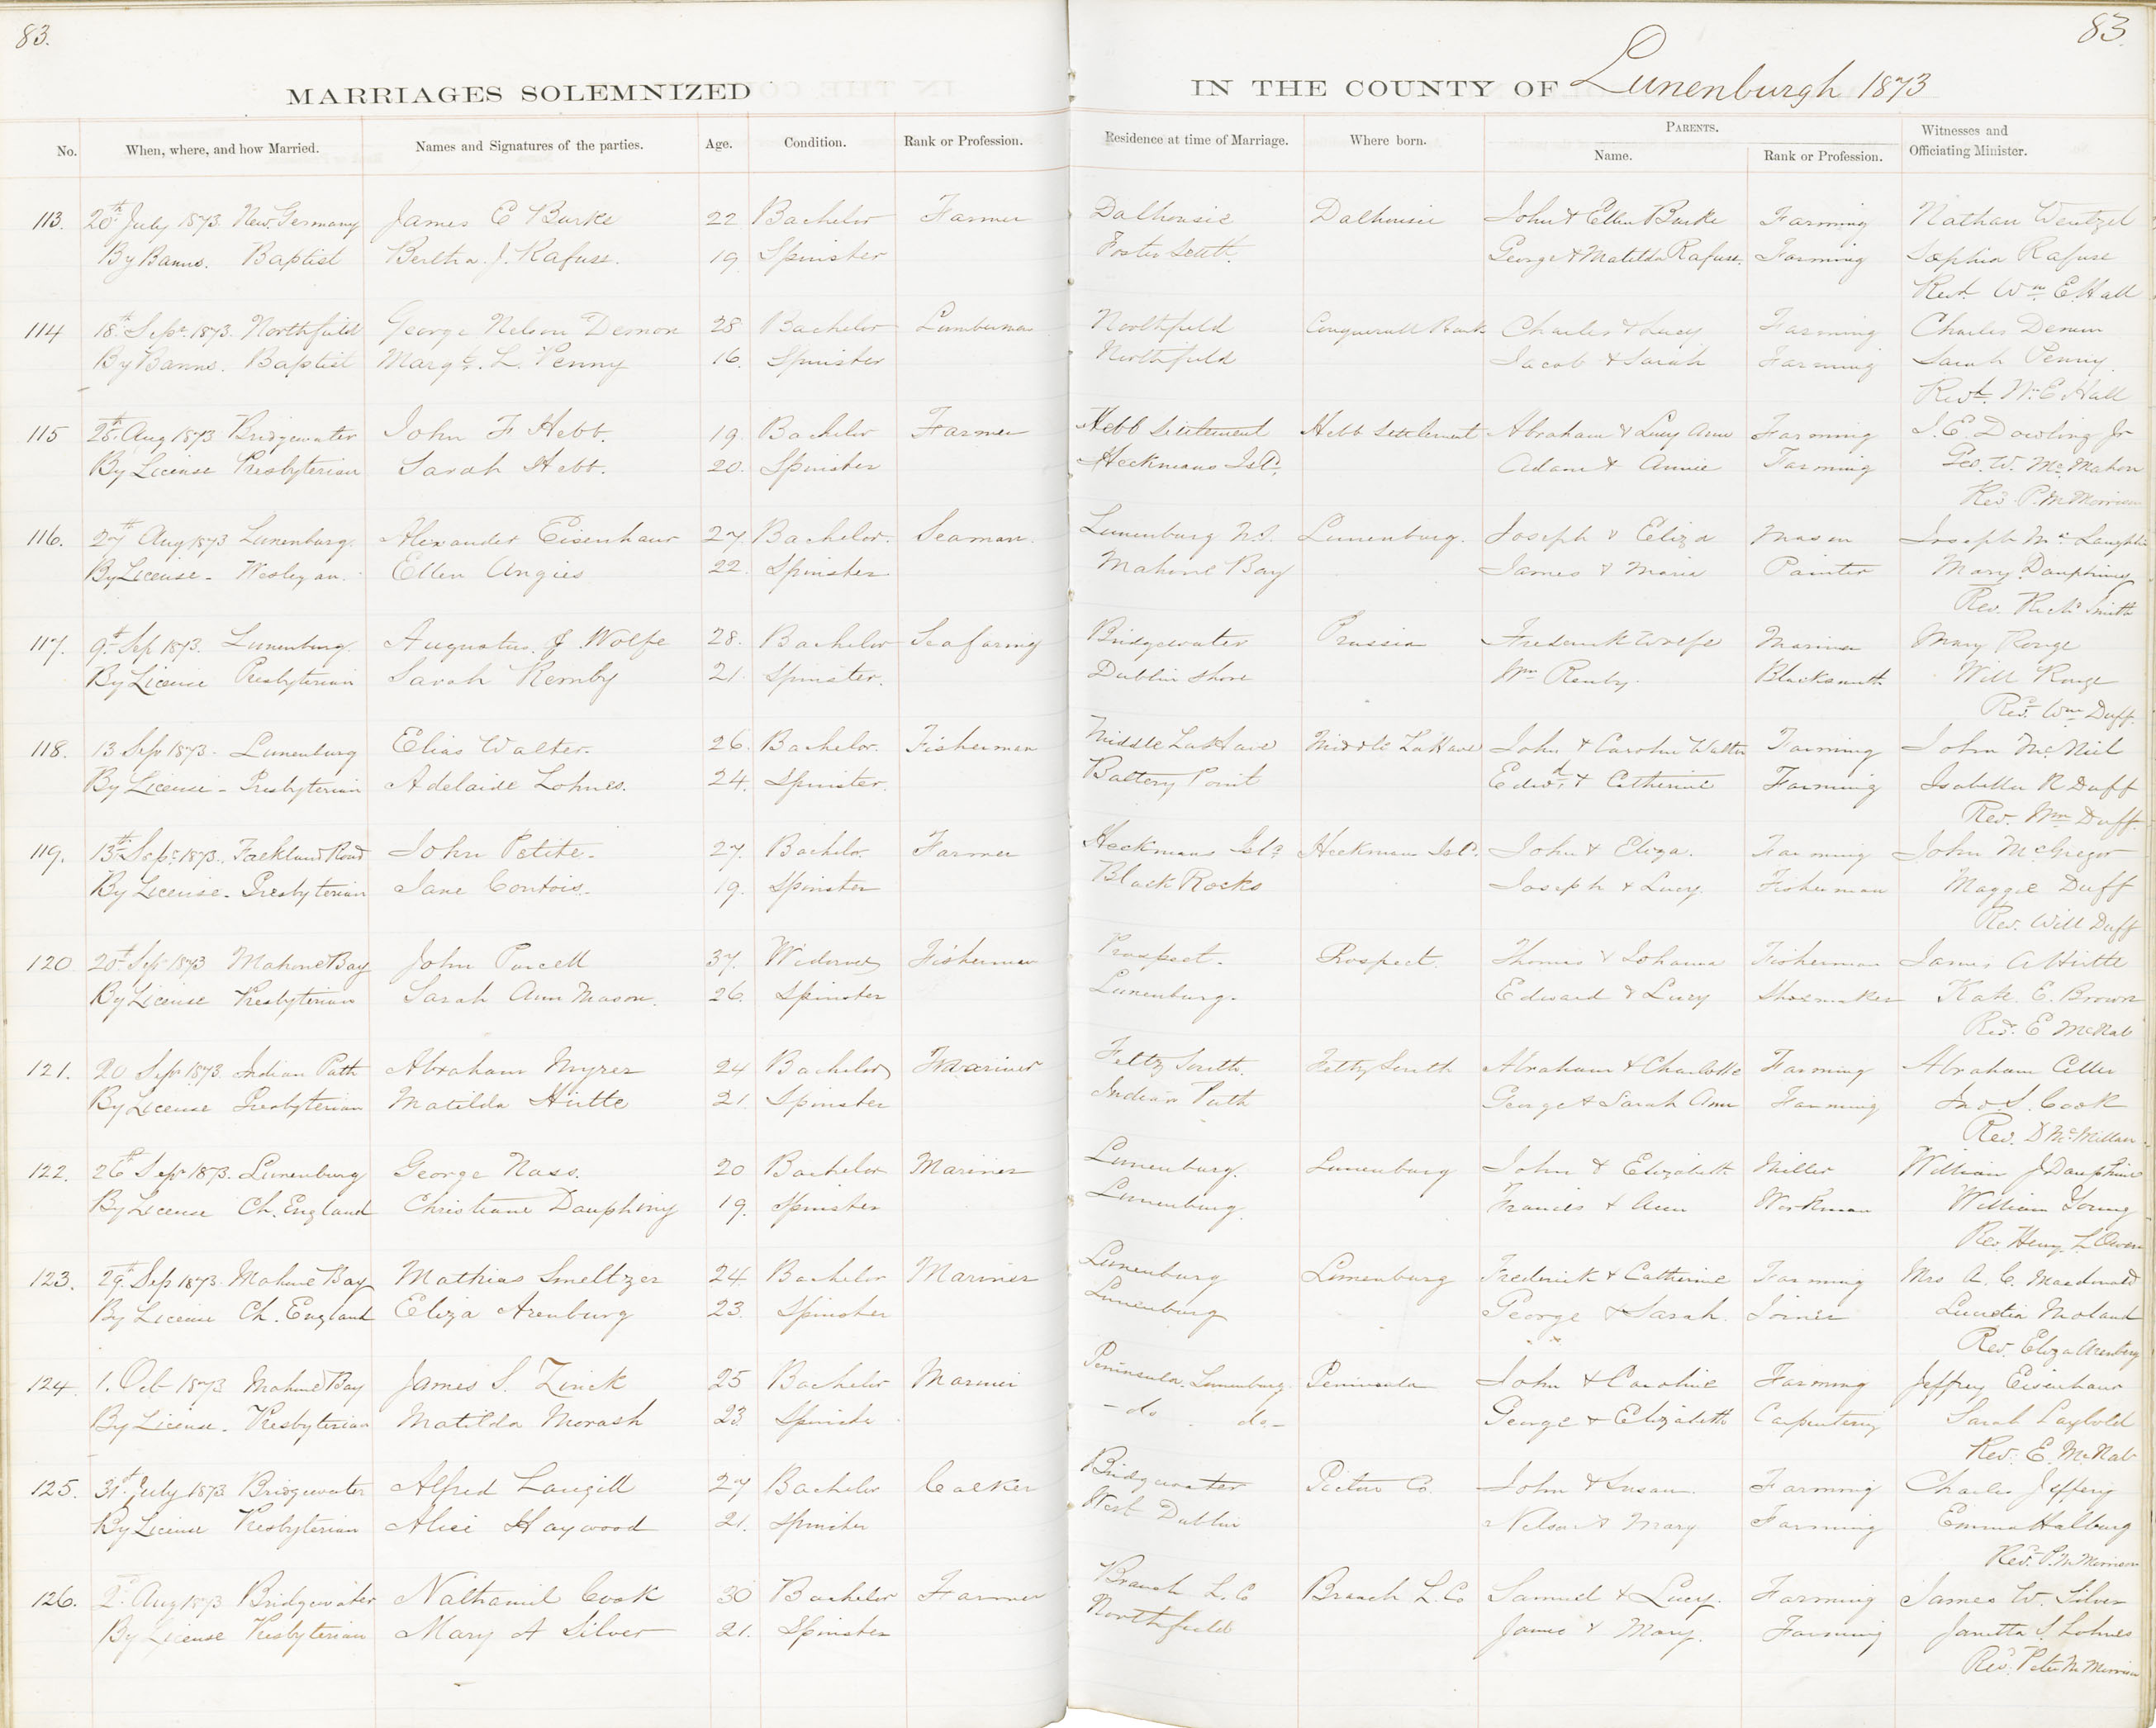 83.
83.
MARRIAGES SOLEMNIZED
IN THE COUNTY OF Lunenburgh 1873
No. When, where, and how Married. Names and Signatures of the parties. Age. Condition. Rank or Profession. Residence at time of Marriage. Where born. PARENTS. Name. Rank or Profession. Witnesses and Officiating Minister.
113. 20th July 1873 New Germany James E Burke 22 Bachelor Farmer Dalhousie Dalhousie John & Ellen Burke Farming Nathan Wentzel
By Banns. Baptist Bertha. J. Rafuse. 19 Spinster Foster Settt. George & Matilda Rafuse. Farming Sophia Rafuse
Revd. Wm E Hall
114 18th Sept. 1873. Northfield George Nelson Demon 28 Bachelor Lumberman Northfield Conquerall Bank Charles & Lucy Farming Charles
By Banns. Baptist Margt. L. Penny 16. Spinster Northfield Jacob & Sarah Farming Sarah Penny.
Revd. Wm E Hall
115 28th Aug 1873 Bridgewater John F Hebb. 19. Bachelor Farmer Hebb Settlement Hebb Settlement Abraham & Lucy Ann Farming S. E. Dowling Jr
By License Presbyterian Sarah Hebb. 20. Spinster Heckmans Isld. Adam & Annie Farming Geo. W. McMahon
Rev P. M. Morrison
116. 27th Aug 1873 Lunenburg. Alexander Eisenhaur 27. Bachelor. Seaman. Lunenburg N.S. Lunenburg. Joseph & Eliza Mason Joseph Mc Laughlin
By License - Wesleyan. Ellen Angies 22. Spinster Mahone Bay James & Maria Painter Mary Dauphiney
Rev. Richd Smith
117. 9th Sep 1873. Lunenburg. Augustus. J. Wolfe 28. Bachelor Seafaring Bridgewater Prussia Frederick Wolfe Mariner Mary Ronge
By License Presbyterian Sarah Remby 21. Spinster. Dublin Shore Wm Remby. Blacksmith Will Ronge
Revd. Wm Duff.
118. 13 Sepr 1873. Lunenburg Elias Walter. 26. Bachelor. Fisherman Middle LaHave Middle LaHave John & Carolin Walter Farming John McNiel
By License - Presbyterian Adelaide Lohnes. 24. Spinster. Battery Point Edwd. & Catherine Farming Isabella R Duff
Rev. Wm Duff.
119. 13th Sept. 1873. Falkland Road John Petite. 27. Bachelor Farmer Heckmans Isld Heckmans Isld. John & Eliza. Farming John McGregor
By License. Presbyterian Jane Contois. 19. Spinster Black Rocks Joseph & Lucy. Fisherman Maggie Duff
Rev. Will Duff
120 20th Sep 1873 Mahone Bay John Purcell 37. Widower Fisherman Prospect. Prospect. Thomas & Johanna Fisherman James A Hirtle
By License Presbyterian Sarah Ann Mason. 26. Spinster Lunenburg. Edward & Lucy Shoemaker Kate. E. Brown
Revd. E McNab
121. 20 Sepr 1873. Indian Path Abraham Myrer 24 Bachelor Mariner Feltz South. Feltz South Abraham & Charlotte Farming Abraham
By License Presbyterian Matilda Hirtle 21. Spinster Indian Path George & Sarah Ann Farming Jno. S. Cook
Rev. D McMillan.
122. 26th Sepr 1873. Lunenburg George Nass. 20 Bachelor Mariner Lunenburg. Lunenburg John & Elizabeth Miller William J Dauphine
By License Ch. England Christiane Dauphiny 19. Spinster Lunenburg. Francis & Ann Workman William Young
Rev. Henry L Owen
123. 29th. Sep 1873. Mahone Bay Mathias Smeltzer 24 Bachelor Mariner Lunenburg Lunenburg Frederick & Catherine Farming Mrs A. C. Macdonald
By License Ch. England Eliza Arenburg 23. Spinster Lunenburg George & Sarah. Joiner Lucretia Moland
Rev. Eliza Arenburg
124. 1. Oct 1873 Mahone Bay James S. Zinck 25 Bachelor Mariner Peninsula. Lunenburg. Peninsula John & Caroline Farming Jeffrey Eisenhaur
By License. Presbyterian Matilda Morash 23 Spinster - do. do. - George & Elizabeth Carpentering Sarah Laybold
Rev. E. McNab
125. 31st July 1873 Bridgewater Alfred Langill 27 Bachelor Calker Bridgewater Pictou Co. John & Susan. Farming Charles Jeffery
By License Presbyterian Alice Haywood 21. Spinster West Dublin Nelson & Mary Farming Emma Halburg
Revd. P. M. Morrison
126. 2d. Aug 1873 Bridgewater Nathaniel Cook 30 Bachelor Farmer Branch L. Co Branch L. Co Samuel & Lucy. Farming James W. Silver
By License Presbyterian Mary A Silver 21. Spinster Northfield James & Mary. Farming Janetta S. Lohnes
Revd. Peter M. Morrison